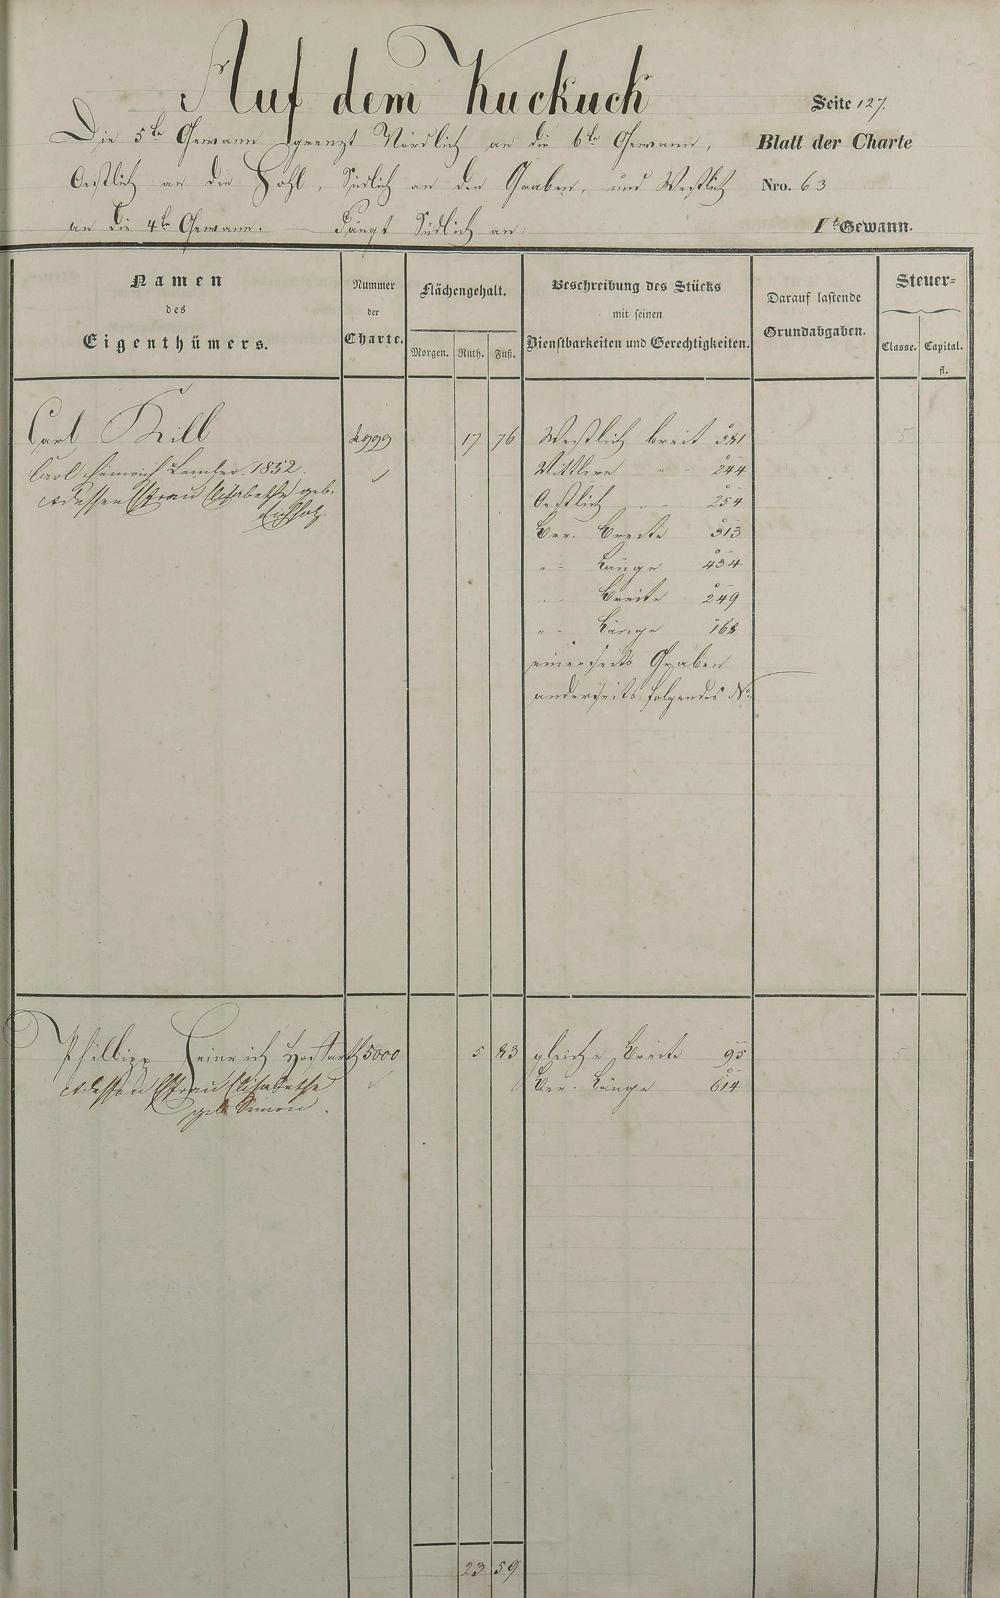 Auf dem Kuckuck
Seite 127.
Die 5te Gewann grenzt Nördlich an die 6te Gewann,
Blatt der Charte
Oestlich an die Hohl, Südlich an den Graben, und Westlich
Nro. 63
an die 4te Gewann. Fängt Südlich an:
Vte Gewann.
Namen
des
Eigenthümers.
Nummer
der
Charte.
Flächengehalt.
Morgen. Ruth. Fuß.
Beschreibung des Stücks
mit seinen
Dienstbarkeiten und Gerechtigkeiten.
Darauf lastende
Grundabgaben.
Steuer-
Classe. Capital.
fl.
Carl Kill 4999 17 76 Westlich breit 331 5
Carl Heinrich 1852. Mittlere " 244
dessen Frau Elisabethe geb. Oestlich 254
Ber. Breite 313
" Länge 434
" Breite 249
" Länge 168
einerseits Graben
anderseits folgendes No.
Phillipp Heinrich 5000 5 83 gleiche Breite 95 5
dessen Frau Elisabethe Ber. Länge 614
geb. Simon.
23 59